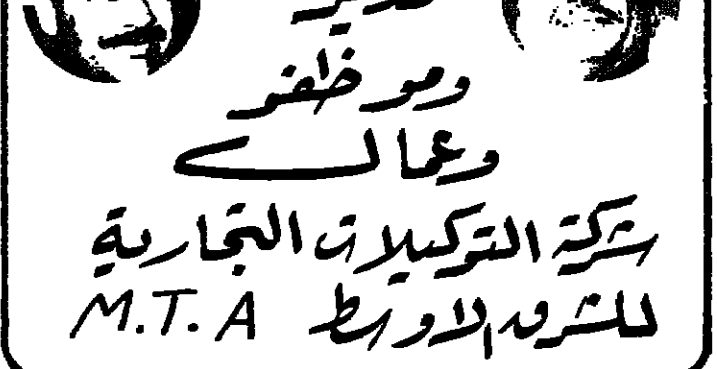 وموظفو
وعمال
شركة التوكيلات التجارية
للشرق الاوسط M.T.A